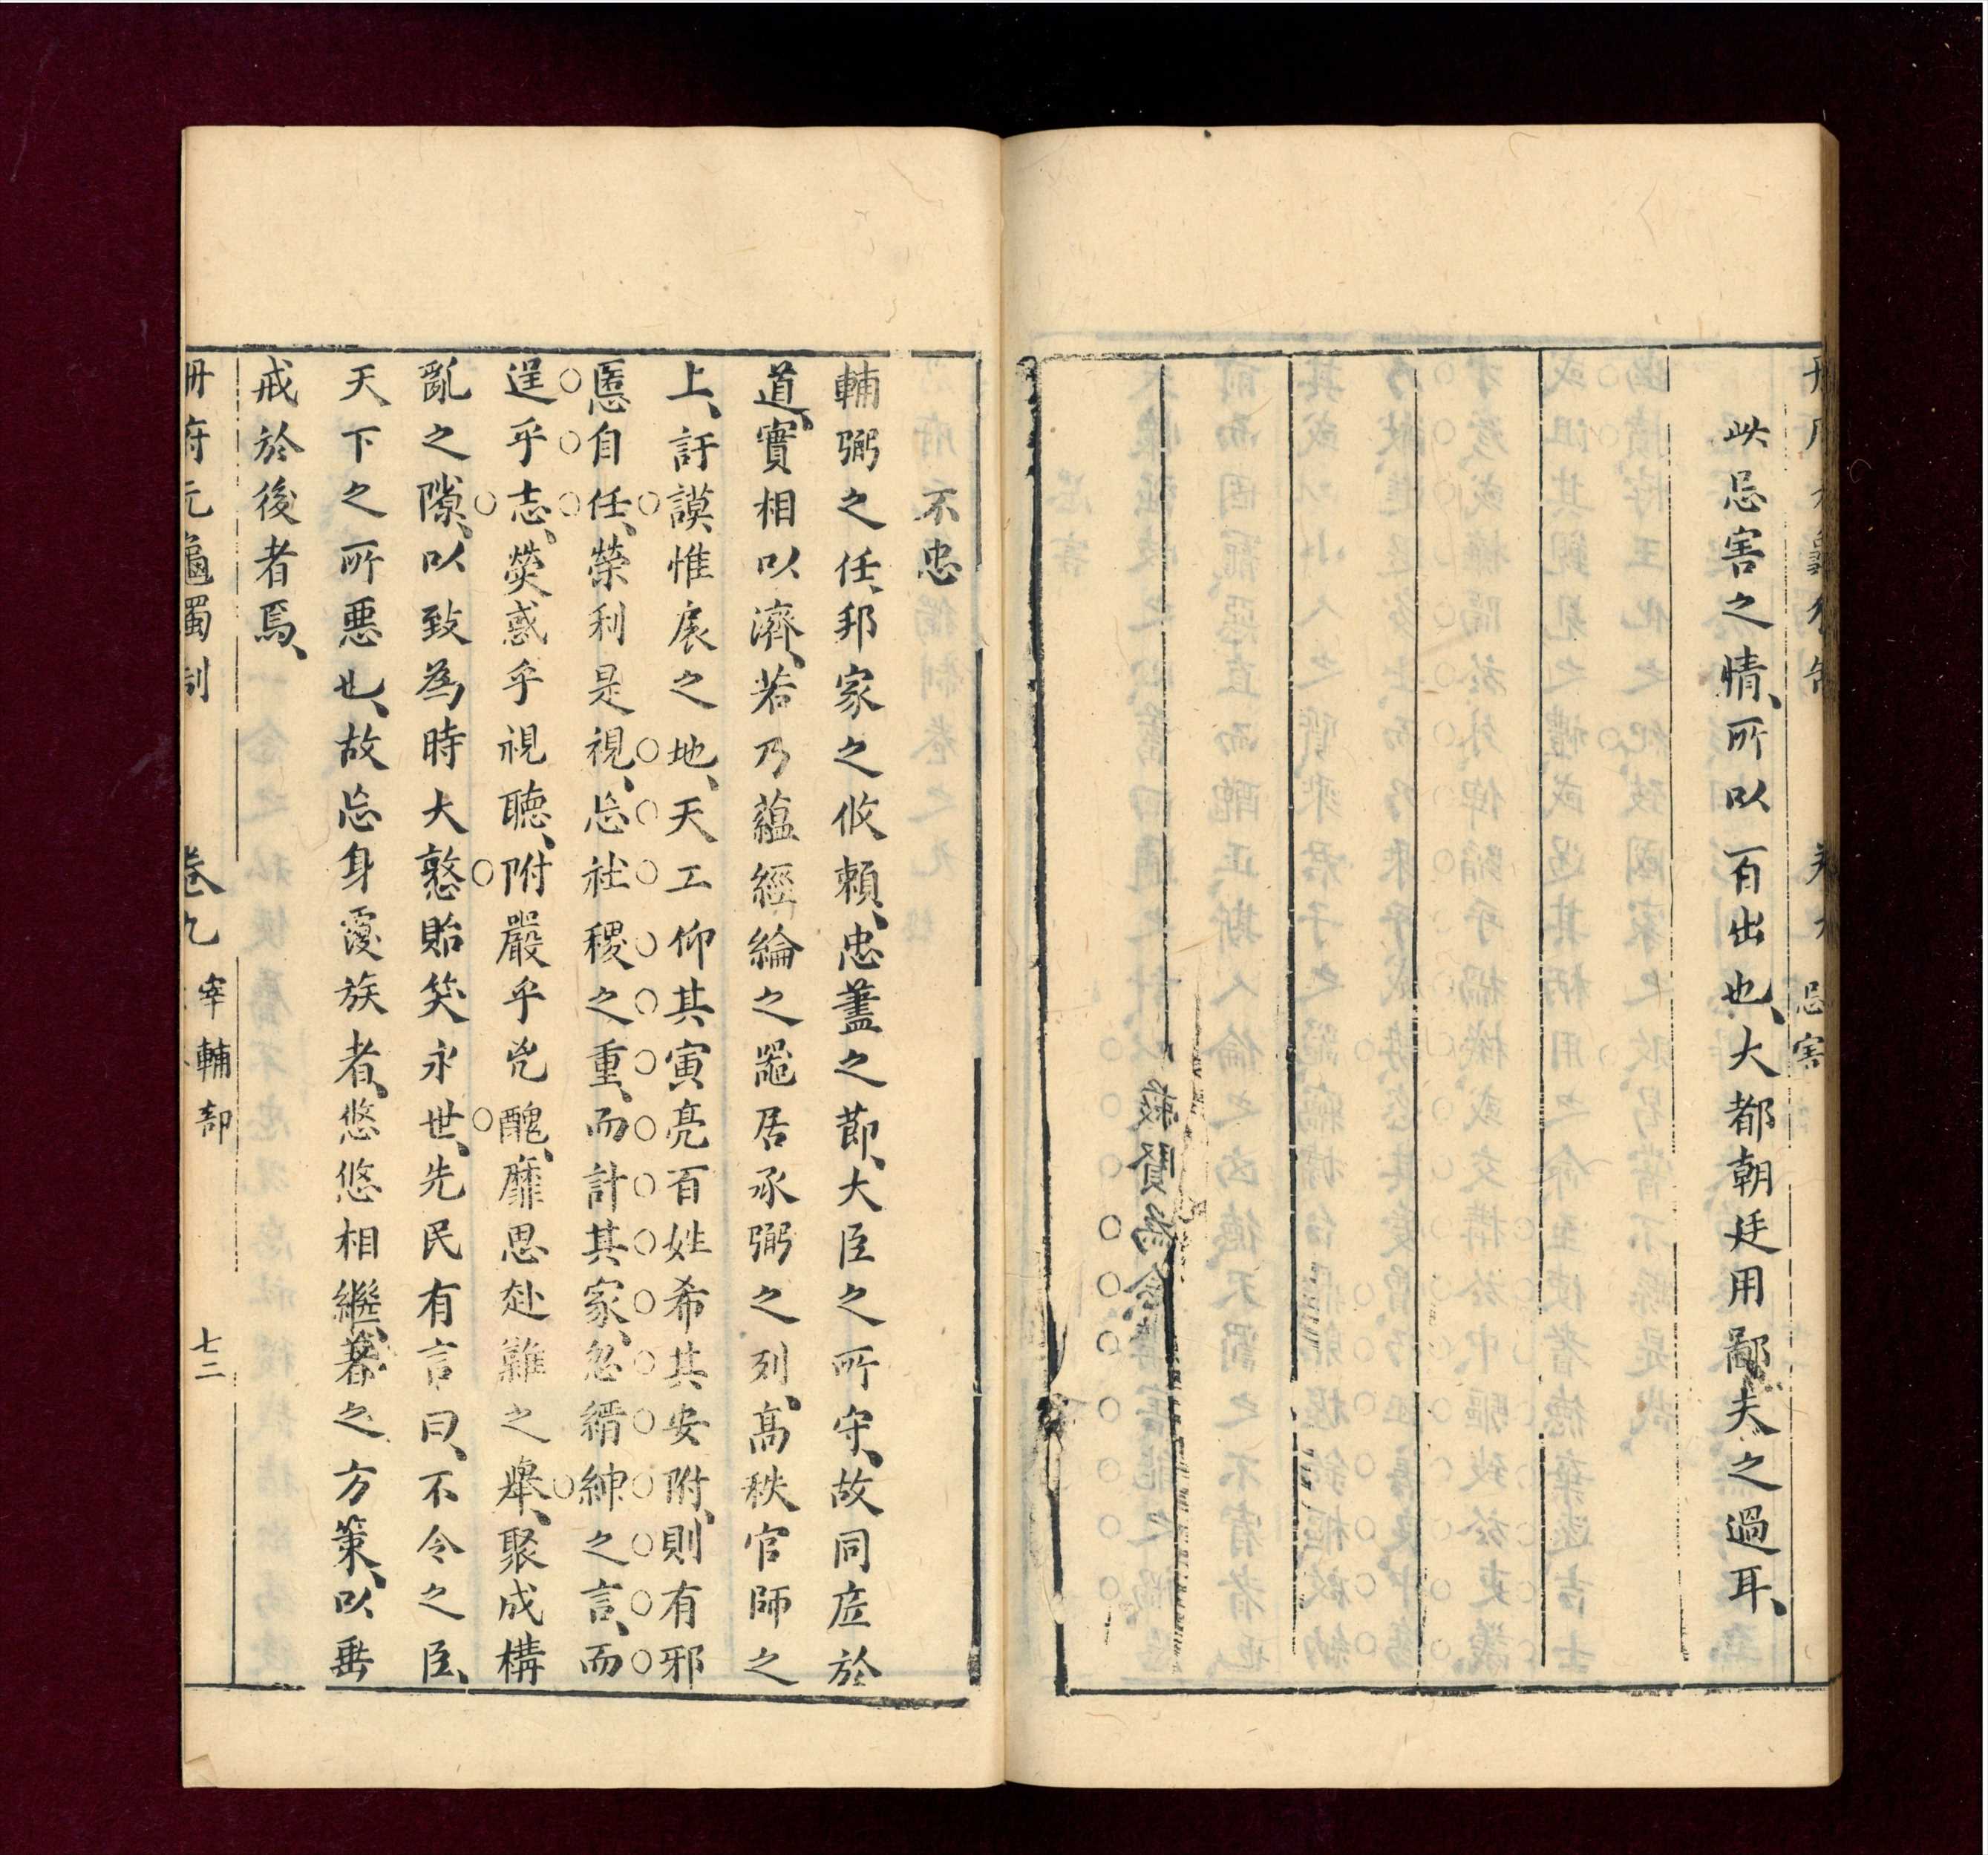 此忌害之情、所以百出也、大都朝廷用鄙夫之過耳、
不忠
輔弼之任、邦家之攸賴、忠藎之節、大臣之所守、故同底於
道、實相以濟、若乃蘊經綸之器居承弼之列、高秩官師之
上、訏謨惟扆之地、天工仰其寅亮百姓希其安附、則有邪
慝自任、榮利是視、忘社稷之重、而計其家、忽縉紳之言、而
逞乎志、熒惑乎視聽、附嚴乎兇醜、靡思赴難之舉、聚成構
亂之隙、以致為時大憝貽笑永世、先民有言曰、不令之臣、
天下之所惡也、故忘身覆族者、悠悠相繼、著之方策、以垂
戒於後者焉、
冊府元龜獨制
卷九
宰輔部
七二